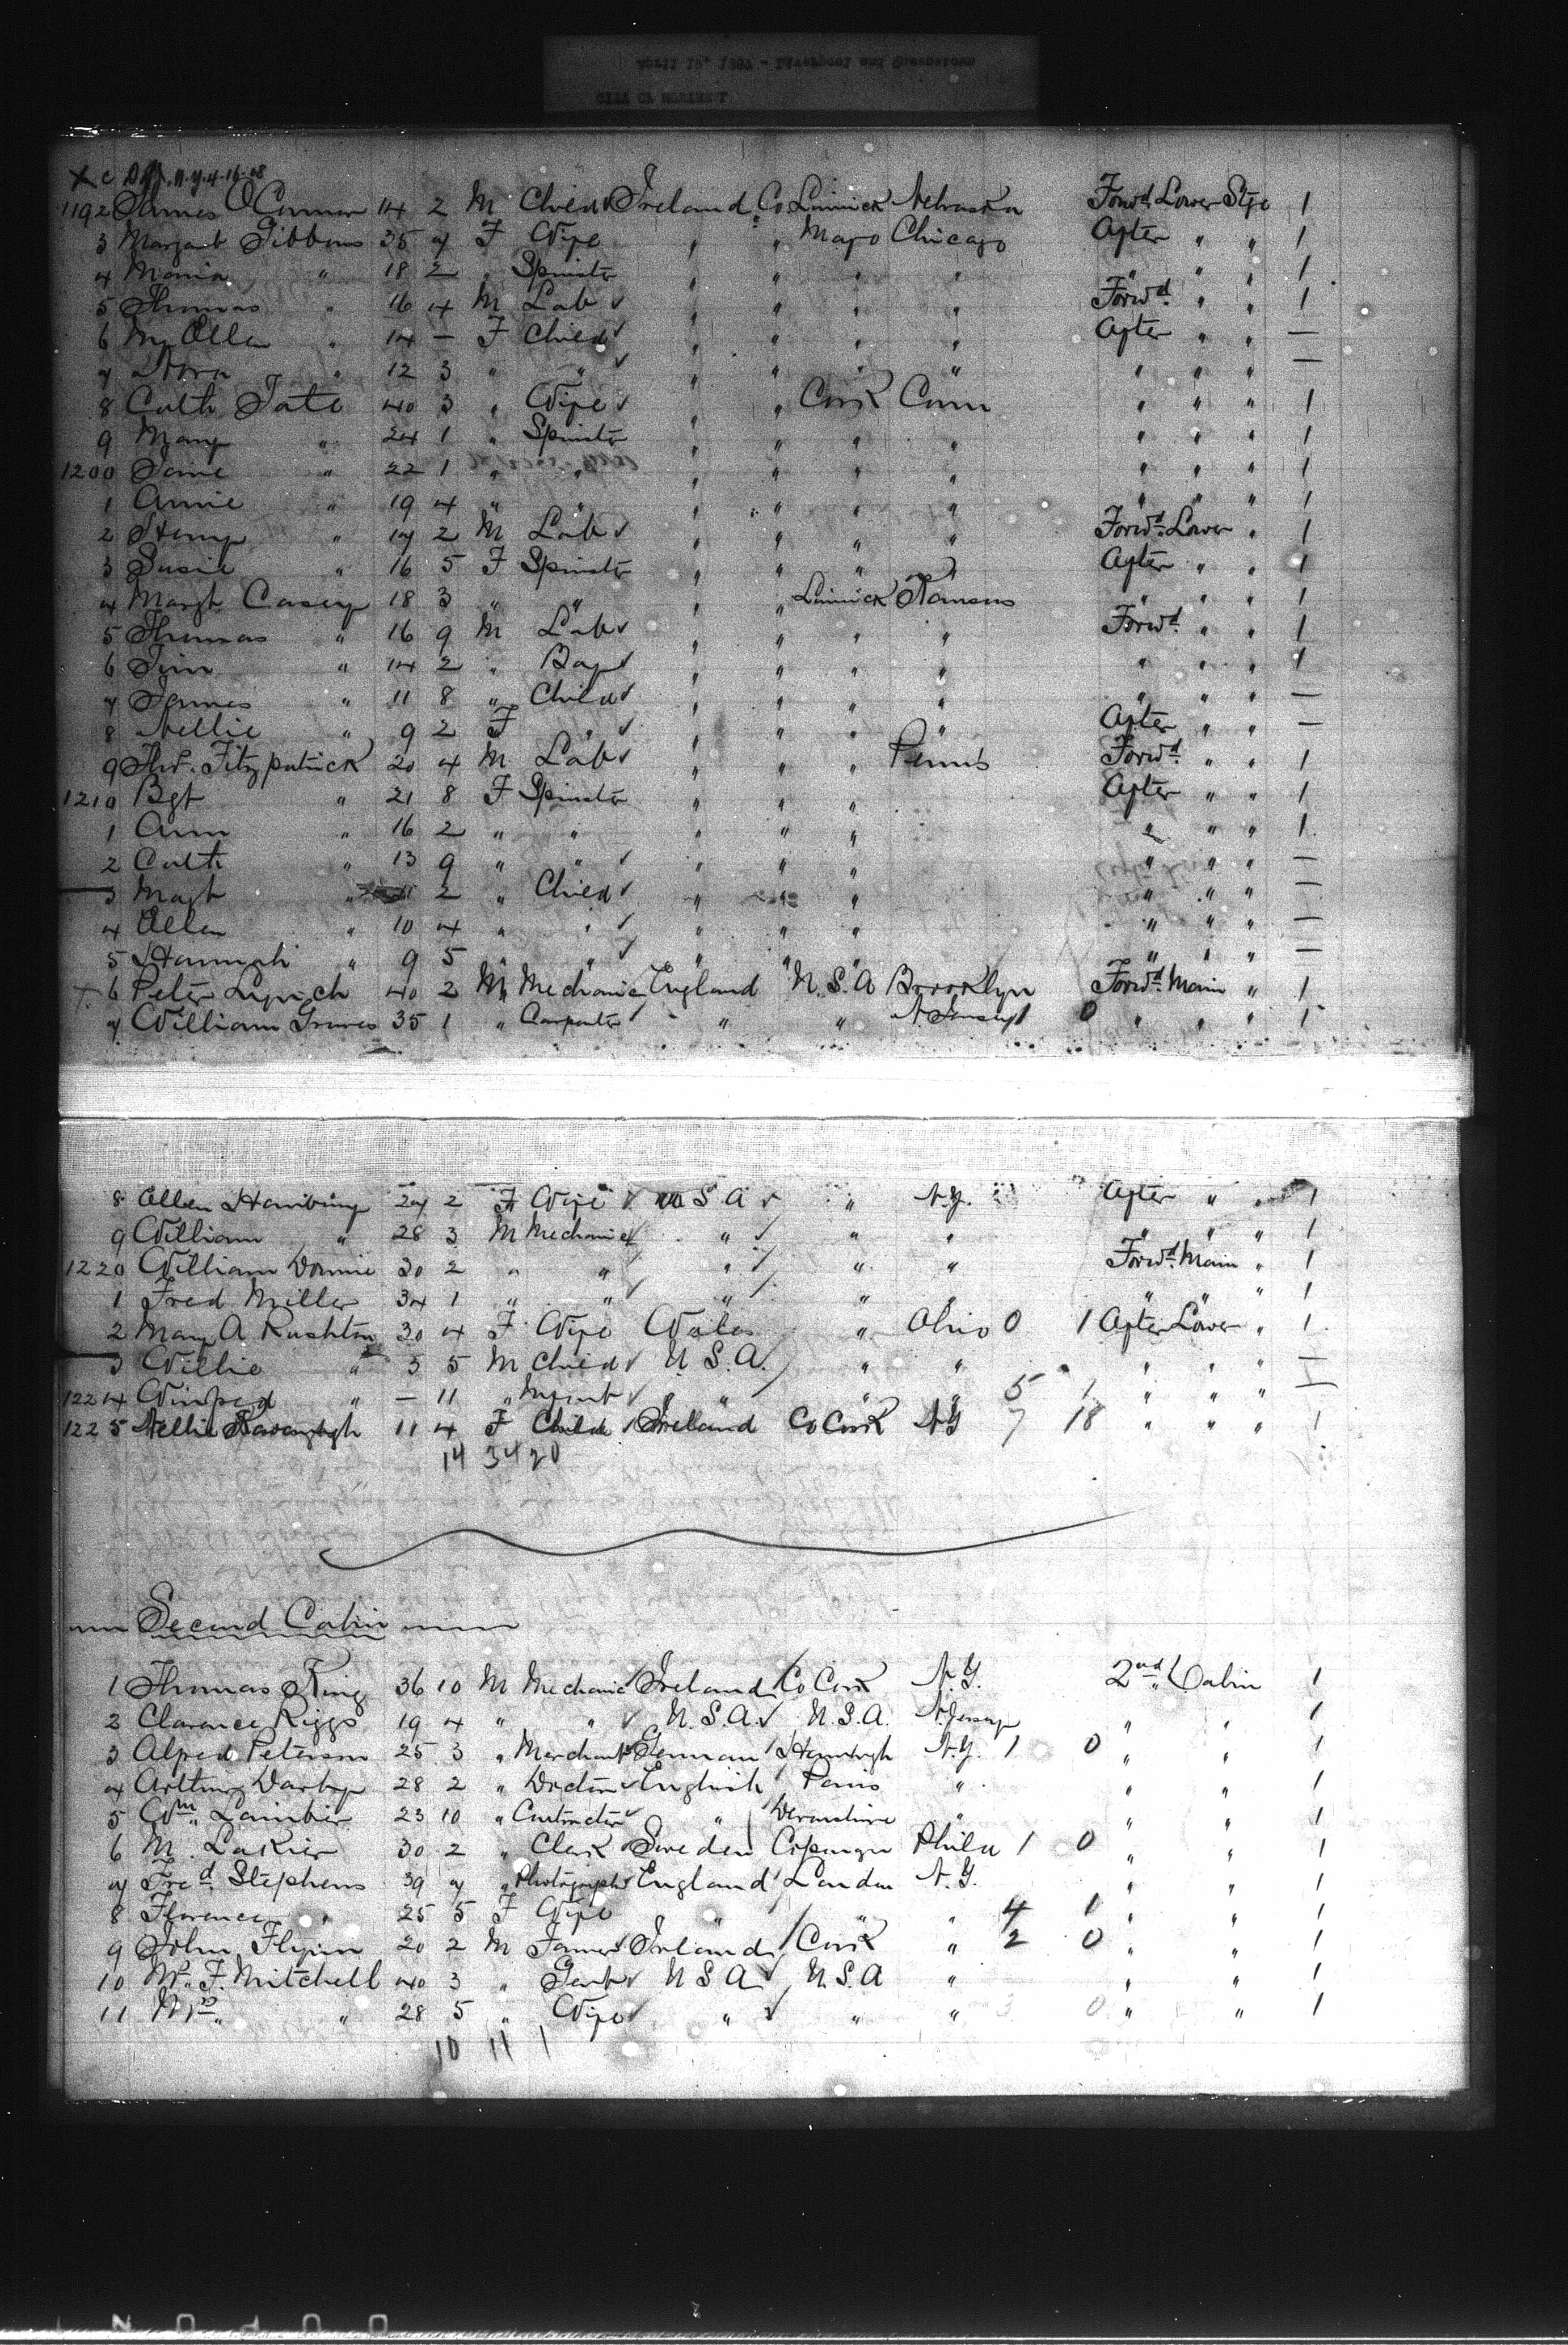 X c D.A. N.Y. 4-16-08
1192 James O'Connor 14 2 M Child ✓ Ireland Co Limrick Nebraska Forwd Lower Stge 1
3 Margaret Gibbons 35 7 F Wife " " Mayo Chicago After " " 1
4 Maria " 18 2 " Spinster " " " " " " " 1
5 Thomas " 16 4 M Lab ✓ " " " " Forwd " " 1
6 My Ellen " 14 – F Child ✓ " " " " After " " —
7 Nora " 12 3 " " ✓ " " " " " " " —
8 Cath Tate 40 3 " Wife ✓ " " Cork Conn " " " 1
9 Mary " 24 1 " Spinster " " " " " " " 1
1200 Jane " 22 1 " " " " " " " " " 1
1 Annie " 19 4 " " " " " " " " " 1
2 Henry " 17 2 M Lab ✓ " " " " Forwd Lower " 1
3 Susie " 16 5 F Spinster " " " " After " " 1
4 Margt Casey 18 3 " " " " Limrick Kansas " " " 1
5 Thomas " 16 9 M Lab ✓ " " " " Forwd " " 1
6 Jim " 14 2 " Boy ✓ " " " " " " " 1
7 James " 11 8 " Child ✓ " " " " " " " —
8 Nellie " 9 2 F " ✓ " " " " After " " —
9 Thos. Fitzpatrick 20 4 M Lab ✓ " " " Penns Forwd " " 1
1210 Bgt " 21 8 F Spinster " " " After " " 1
1 Ann " 16 2 " " " " " " " " 1
2 Cath " 13 9 " " ✓ " " " " " " —
3 Magt " 11 2 " Child ✓ " " " " " " —
4 Ellen " 10 4 " " ✓ " " " " " " —
5 Hannah " 9 5 " " ✓ " " " " " " —
+ 6 Peter Lynch 40 2 M Mechanic England U.S.A Brooklyn Forwd Main " 1
7 William Graves 35 1 " Carpenter ✓ " " N. Jersey 1 0 " " " 1
8 Ellen 27 2 F Wife ✓ U S A ✓ " N.Y. After " " 1
9 William " 28 3 M Mechanic ✓ " ✓ " " " " " 1
1220 William 30 2 " " ✓ " ✓ " " Forwd Main " 1
1 Fred Miller 34 1 " " ✓ " ✓ " " " " " 1
2 Mary A Rushton 30 4 F Wife Wales " Ohio 0 1 After Lower " 1
3 Willie " 3 5 M Child ✓ U.S.A. ✓ " " " " " —
1224 Winifred " – 11 " Infant ✓ " " " " 5 1 " " " —
1225 Nellie Kavanagh 11 4 F Child ✓ Ireland Co Cork NY 7 18 " " " 1
14 34 20
Second Cabin
1 Thomas King 36 10 M Mechanic ✓ Ireland Co Cork N.Y. 2nd Cabin 1
2 Clarence Riggs 19 4 " " ✓ U.S.A. ✓ U.S.A. N. Jersey " " 1
3 Alfred Peterson 25 3 " Merchant ✓ German Hamburgh N.Y. 1 0 " " 1
4 Arthur Darby 28 2 " Doctor ✓ English Paris " " " 1
5 Wm 23 10 " Contractor ✓ " Devonshire " " " 1
6 M. 30 2 " Clerk Sweden Phila 1 0 " " 1
7 Fred Stephens 39 7 " Photographer England London N.Y. " " 1
8 Florence " 25 5 F Wife " " " 4 1 " " 1
9 John Flynn 20 2 M Farmer ✓ Ireland Cork " 2 0 " " 1
10 Mr. F. Mitchell 40 3 " Gent ✓ U S A ✓ U.S.A " " " 1
11 Mrs. " 28 5 " Wife ✓ " ✓ " " 3 0 " " 1
10 11 1